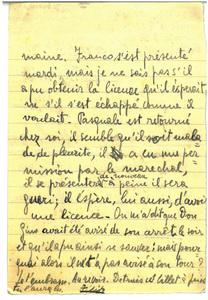 maine. Franco s'est présenté
mardi, mais je ne sais pas s'il
a pu obtenir la licence qu'il espérait,
ou s'il s'est échappé comme il
voulait. Pasquale est retourné
chez soi, il semble qu'il soit mala
de de pleurite, il a eu une per
mission par le marechal,
de nouveau
il se présentera à peine il sera
gueri; il espère, lui aussi, d'avoir
une licence. On m'a dit que Don
Gino avait été avisé de son arrêt à soir
et qu'il a pu ainsi se sauver: mais pour
quoi alors n'a-t-il pas avisé à son tour?
Je t'embrasse. Au revoir.